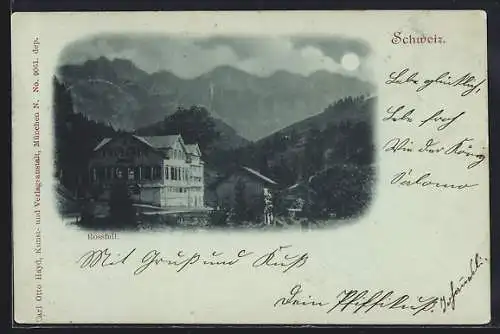 Schweiz.
Lebe glücklich,
Lebe froh
Wie der König
Salomo
Rossfall.
Mit Gruß und Kuß
Dein Pfiffikuß.
Carl Otto Hayd, Kunst- und Verlagsanstalt, München N. No. 9061. dep.